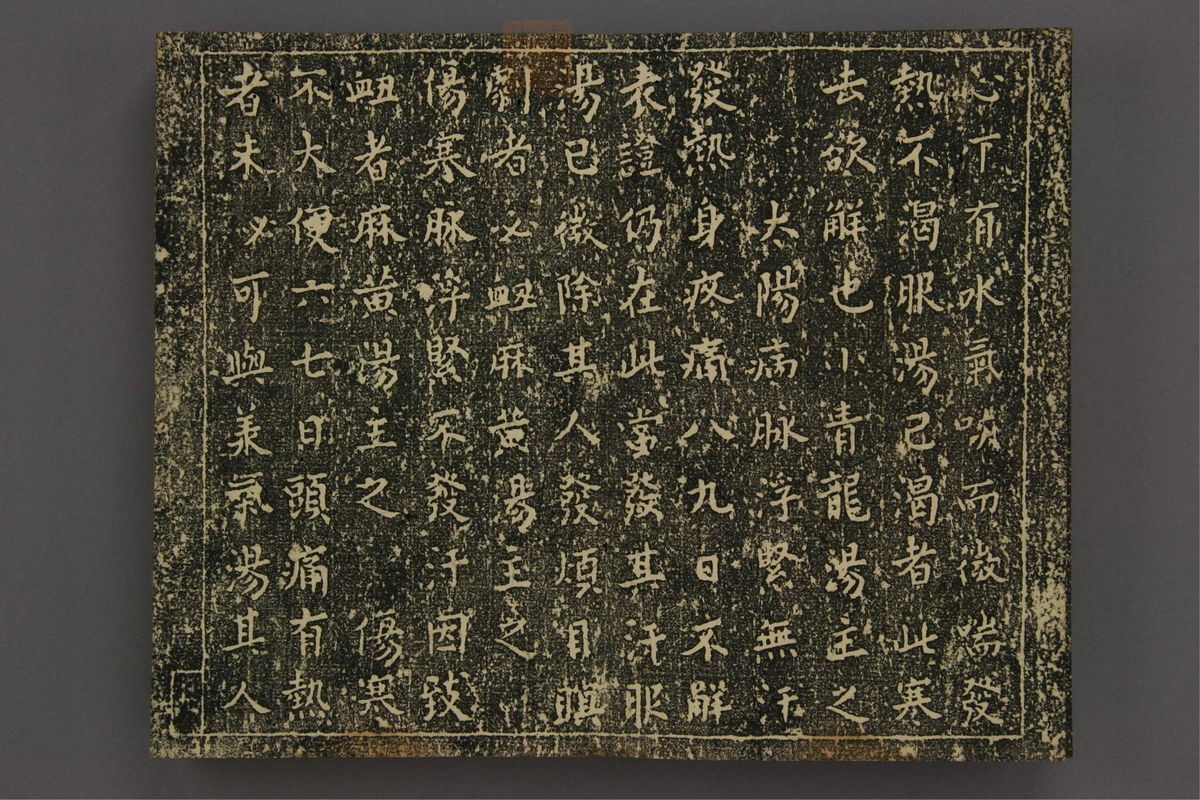 心下有水氣咳而微喘發
熱不渴服湯已渴者此寒
去欲解也小青龍湯主之
太陽病脉浮緊無汗
發熱身疼痛八九日不解
表證仍在此當發其汗服
湯已微除其人發煩目瞑
劇者必衄麻黄湯主之
傷寒脉浮緊不發汗因致
衄者麻黄湯主之 傷寒
不大便六七日頭痛有熱
者未必可與承氣湯其人